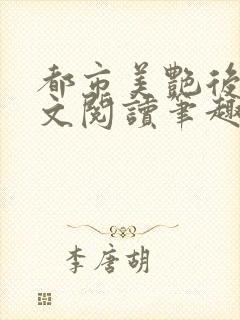 都市美艷後
文閱讀筆趣
李唐胡